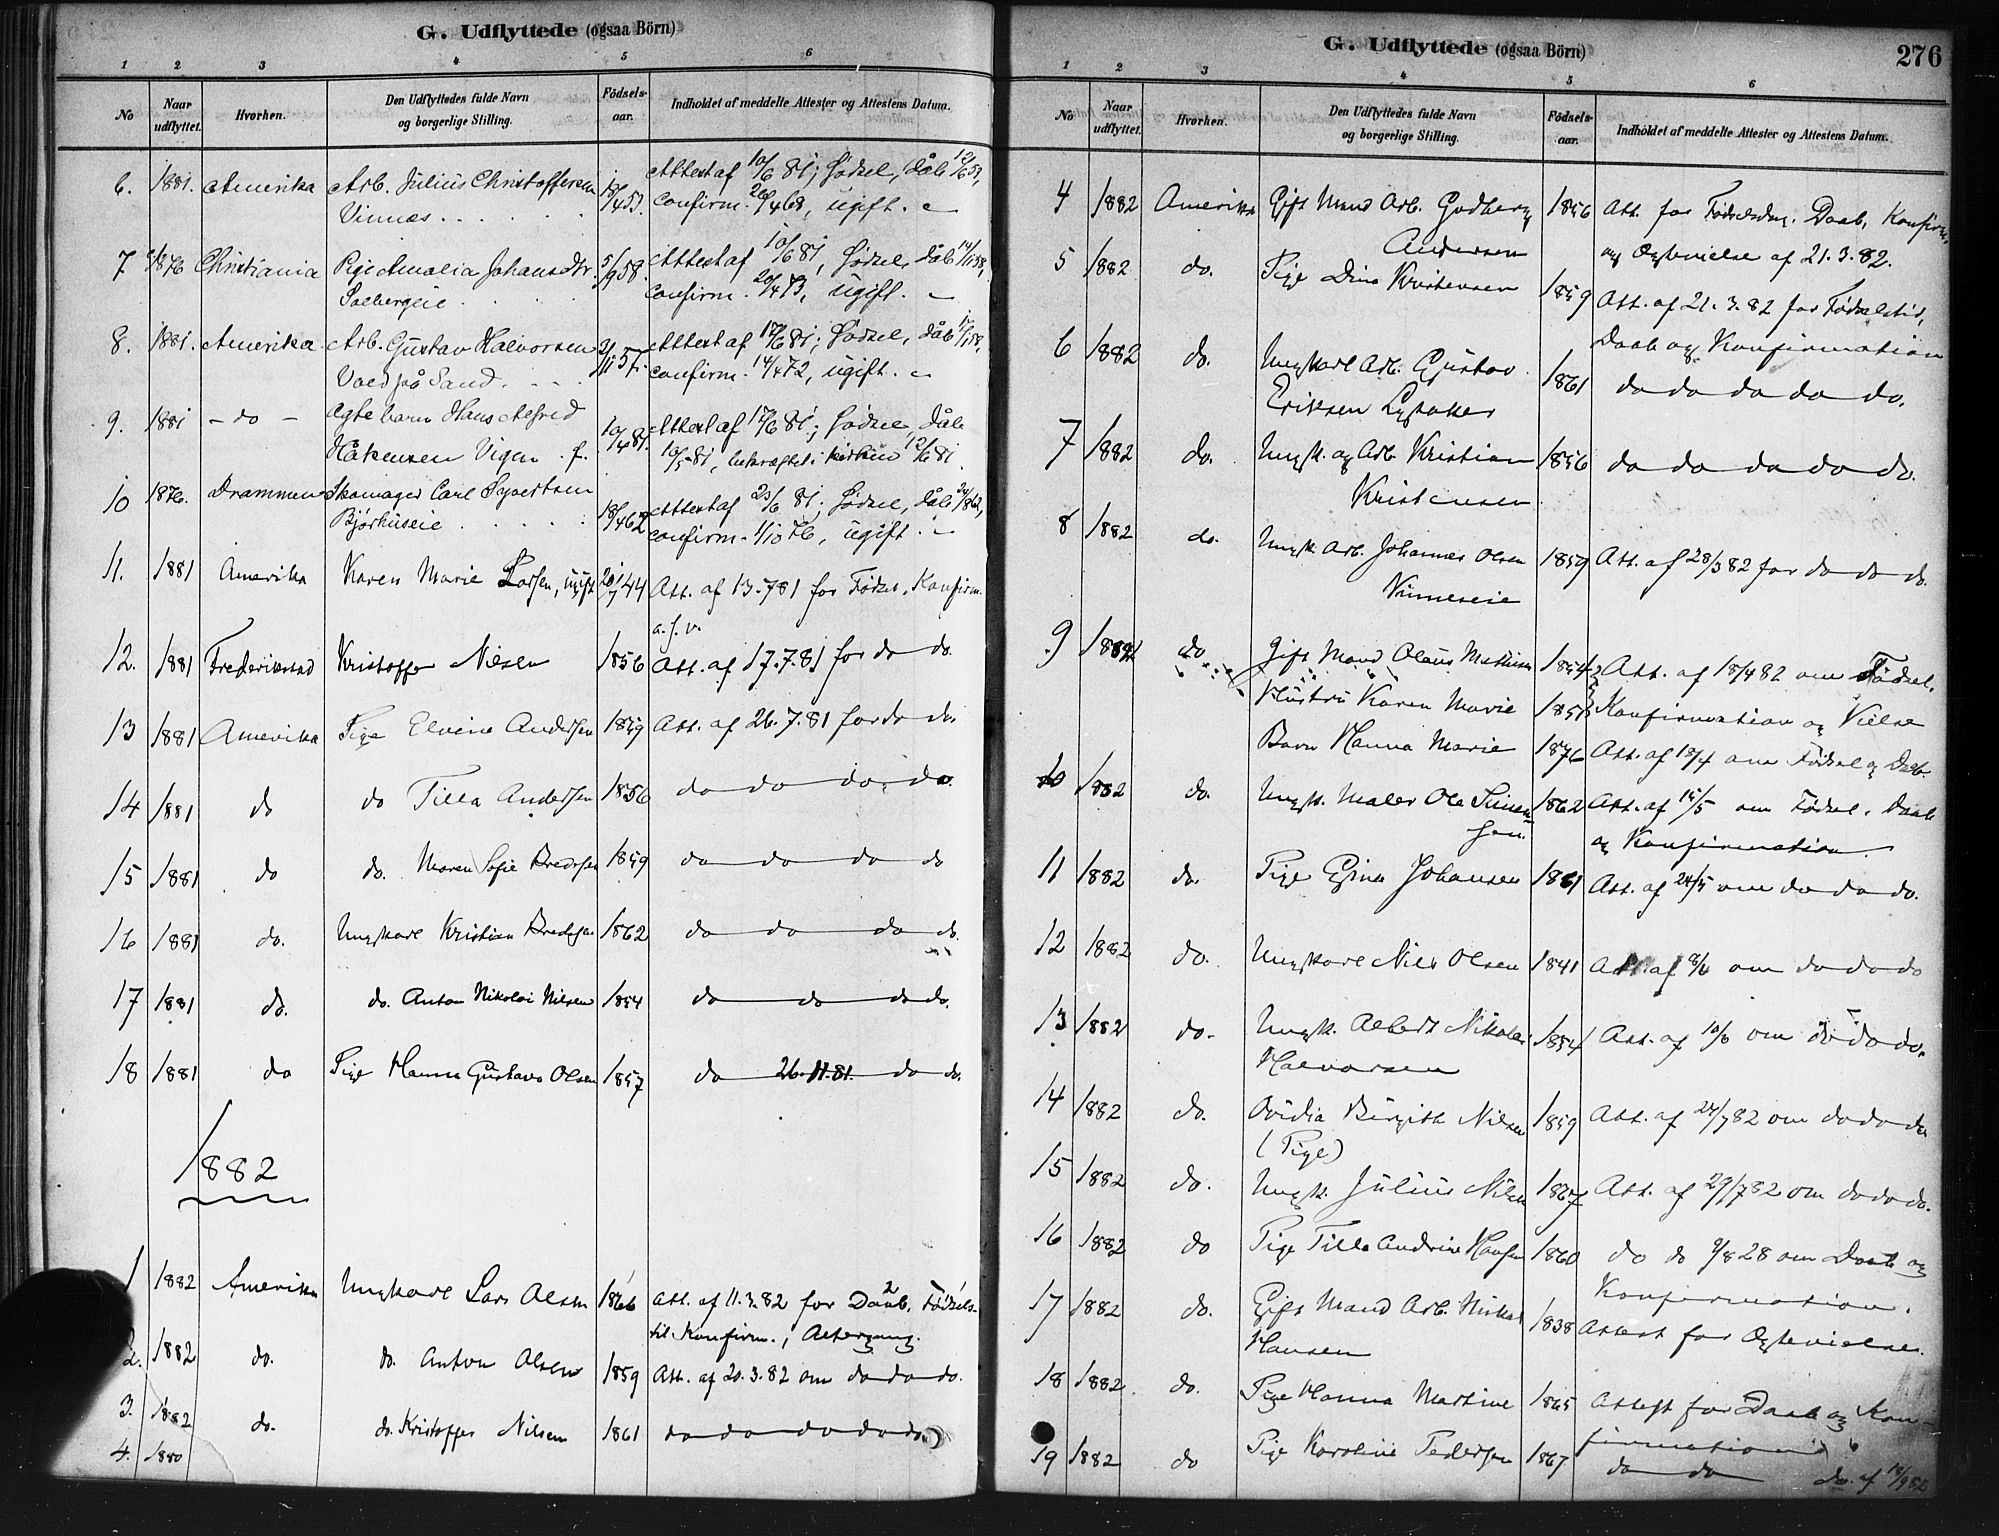 G. Udflyttede (ogsaa Börn)
1 2 3 4 5 6
No Naar udflyttet. Hvorhen. Den Udflyttedes fulde Navn og borgerlige Stilling. Födsels-aar. Indholdet af meddelte Attester og Attestens Datum.
6. 1881. Amerika Arb. Julius Christoffersen Attest af 10/6 81; Fødsel, Dåb
Vinnæs confirm. 26/4 68, ugift.
7 1876 Christiania Pige Amalia Johansdtr. 5/9 58. Attest af 10/6 81, Fødsel, Dåb
Solbergeie confirm. 20/4 73, ugift.
8. 1881. Amerika Arb. Gustav Halvorsen Attest af 17/6 81; Fødsel, Dåb
Vold på Sand. confirm. 14/4 72, ugift.
9. 1881 - do - Ægtebarn Hans Alfred 10/4 81. Attest af 17/6 81; Fødsel, Dåb
Håkensen Vigen bekræftet i kirken 12/6 81.
10 1876. Drammen Skomager Carl Syvertsen 18/4 62 Attest af 23/6 81; Fødsel, Dåb
Bjørhuseie confirm. 1/10 76, ugift.
11. 1881 Amerika Karen Marie Larsen, ugift 44 Att. af 13.7 81 for Fødsel, Konfirm.
a. s. v.
12. 1881 Frederikstad Kristoffer Nilsen 1856 Att. af 17.7.81 for do do
13 1881 Amerika Pige Elvine Andersen 1859 Att. af 26.7.81 for do do
14 1881 do do Tilla Andersen 1856 do do do do.
15 1881 do do. Maren Sofie Bredesen 1859 do do do do
16 1881 do. Ungkarl Kristian Bredesen 1862 do do do do.
17 1881 do. do. Anton Nikolai Nilsen 1854 do do do do.
18 1881 do Pige Hanna Gustava Olsen 1857 do 26.11.81. do do.
1882
1 1882 Amerika Ungkarl Lars Olsen 1866 Att. af 11.3.82 for Daab, Fødsels-
til Konfirm.,
2. 1882 do. do. Anton Olsen 1859 Att. af 20.3.82 om do do do.
3. 1882 do. do. Kristoffer Nilsen 1861 do do do do do
4. 1880
G. Udflyttede (ogsaa Börn) 276
1 2 3 4 5 6
No Naar udflyttet. Hvorhen. Den Udflyttedes fulde Navn og borgerlige Stilling. Födsels-aar. Indholdet af meddelte Attester og Attestens Datum.
4 1882 Amerika Gift Mand Arb. Gudberg 1856 Att. for Fødselsdag, Daab, Konfirm.
Andersen og Ægtevielse af 21.3.82.
5 1882 do. Pige Dina Kristensen 1859 Att. af 21.3.82 for Fødselstid,
Daab og Konfirmation
6 1882 do. Ungkarl Arb. Gustav 1861 do do do do do.
Eriksen Lysaker
7 1882 do. Ungk. og Arb. Kristian 1856 do do do do do.
Kristensen
8 1882 do. Ungk. Arb. Johannes Olsen 1859 Att. af 28/3 82 for do do do.
Vinneseie
9 1882 do Gift Mand Olaus Mathisen 1854 Att. af 18/4 82 om Fødsel,
Hustru Karen Marie Konfirmation og Vielse
Barn Hanna Marie 1876 Att. af 18/4 om Fødsel og Daab
10 1882 do. Ungk. Maler Ole Simen- 1862 Att. af 15/5 om Fødsel, Daab
sen. og Konfirmation.
11 1882 do. Pige Gina Johansen 1861 Att. af 24/5 om do do do.
12 1882 do. Ungkarl Nils Olsen 1841 Att. af 8/6 om do do do
13 1882 do. Ungk. Albert Nikolai 1854 Att. af 10/6 om do do do.
Halvorsen
14 1882 do. Ovidia Birgitte Nilsen 1859 Att. af 24/7 82 om do do do
(Pige)
15 1882 do. Ungk. Julius Nilsen 1867 Att. af 29/7 82 om do do do.
16 1882 do Pige Tilla Andrine Hansen 1860 do do 9/8 28 om Daab og
Konfirmation.
17 1882 do. Gift Mand Arb. 1838 Attest for Ægtevielse.
Hansen
18 1882 do. Pige Hanna Martine 1865 Attest for Daab og Kon-
firmation
19 1882 do Pige Karoline Pedersen 1867 do do do. af 18/9 82